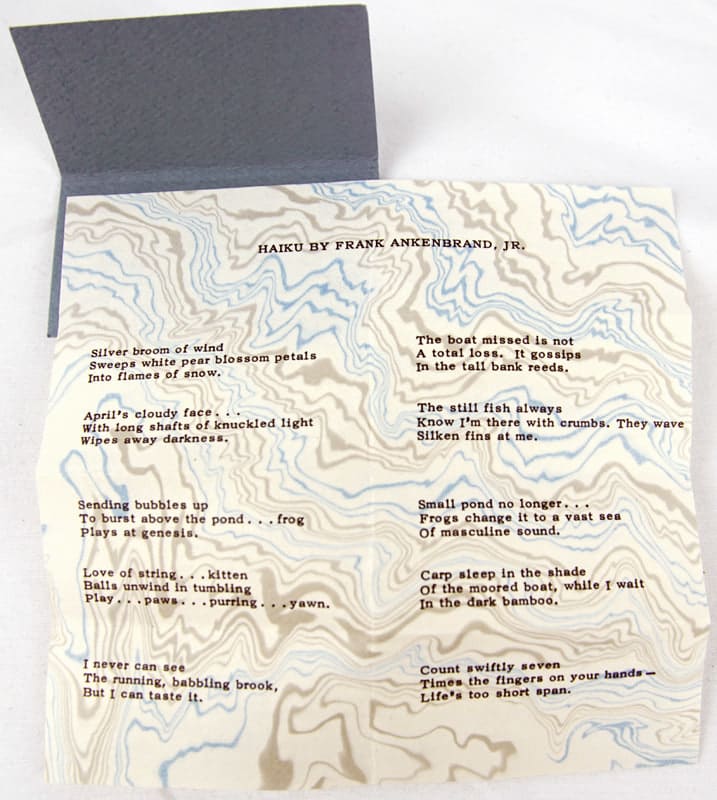 HAIKU BY FRANK ANKENBRAND, JR.
Silver broom of wind
Sweeps white pear blossom petals
Into flames of snow.
April's cloudy face . . .
With long shafts of knuckled light
Wipes away darkness.
Sending bubbles up
To burst above the pond . . . frog
Plays at genesis.
Love of string . . . kitten
Balls unwind in tumbling
Play . . . paws . . . purring . . . yawn.
I never can see
The running, babbling brook,
But I can taste it.
The boat missed is not
A total loss. It gossips
In the tall bank reeds.
The still fish always
Know I'm there with crumbs. They wave
Silken fins at me.
Small pond no longer . . .
Frogs change it to a vast sea
Of masculine sound.
Carp sleep in the shade
Of the moored boat, while I wait
In the dark bamboo.
Count swiftly seven
Times the fingers on your hands—
Life's too short span.